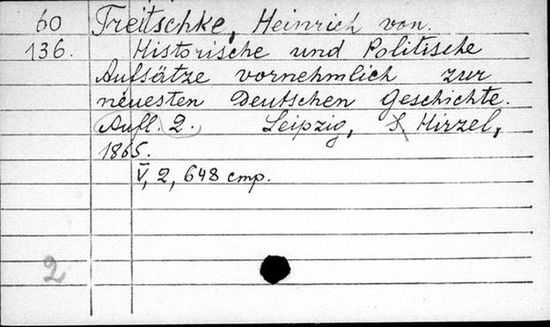 60 Treitschke, Heinrich von.
136. Historische und Politische
Aufsätze vornehmlich zur
neuesten Deutschen Geschichte.
(Aufl. 2.) Leipzig, S Hirzel,
1865.
V, 2, 648 стр.
2